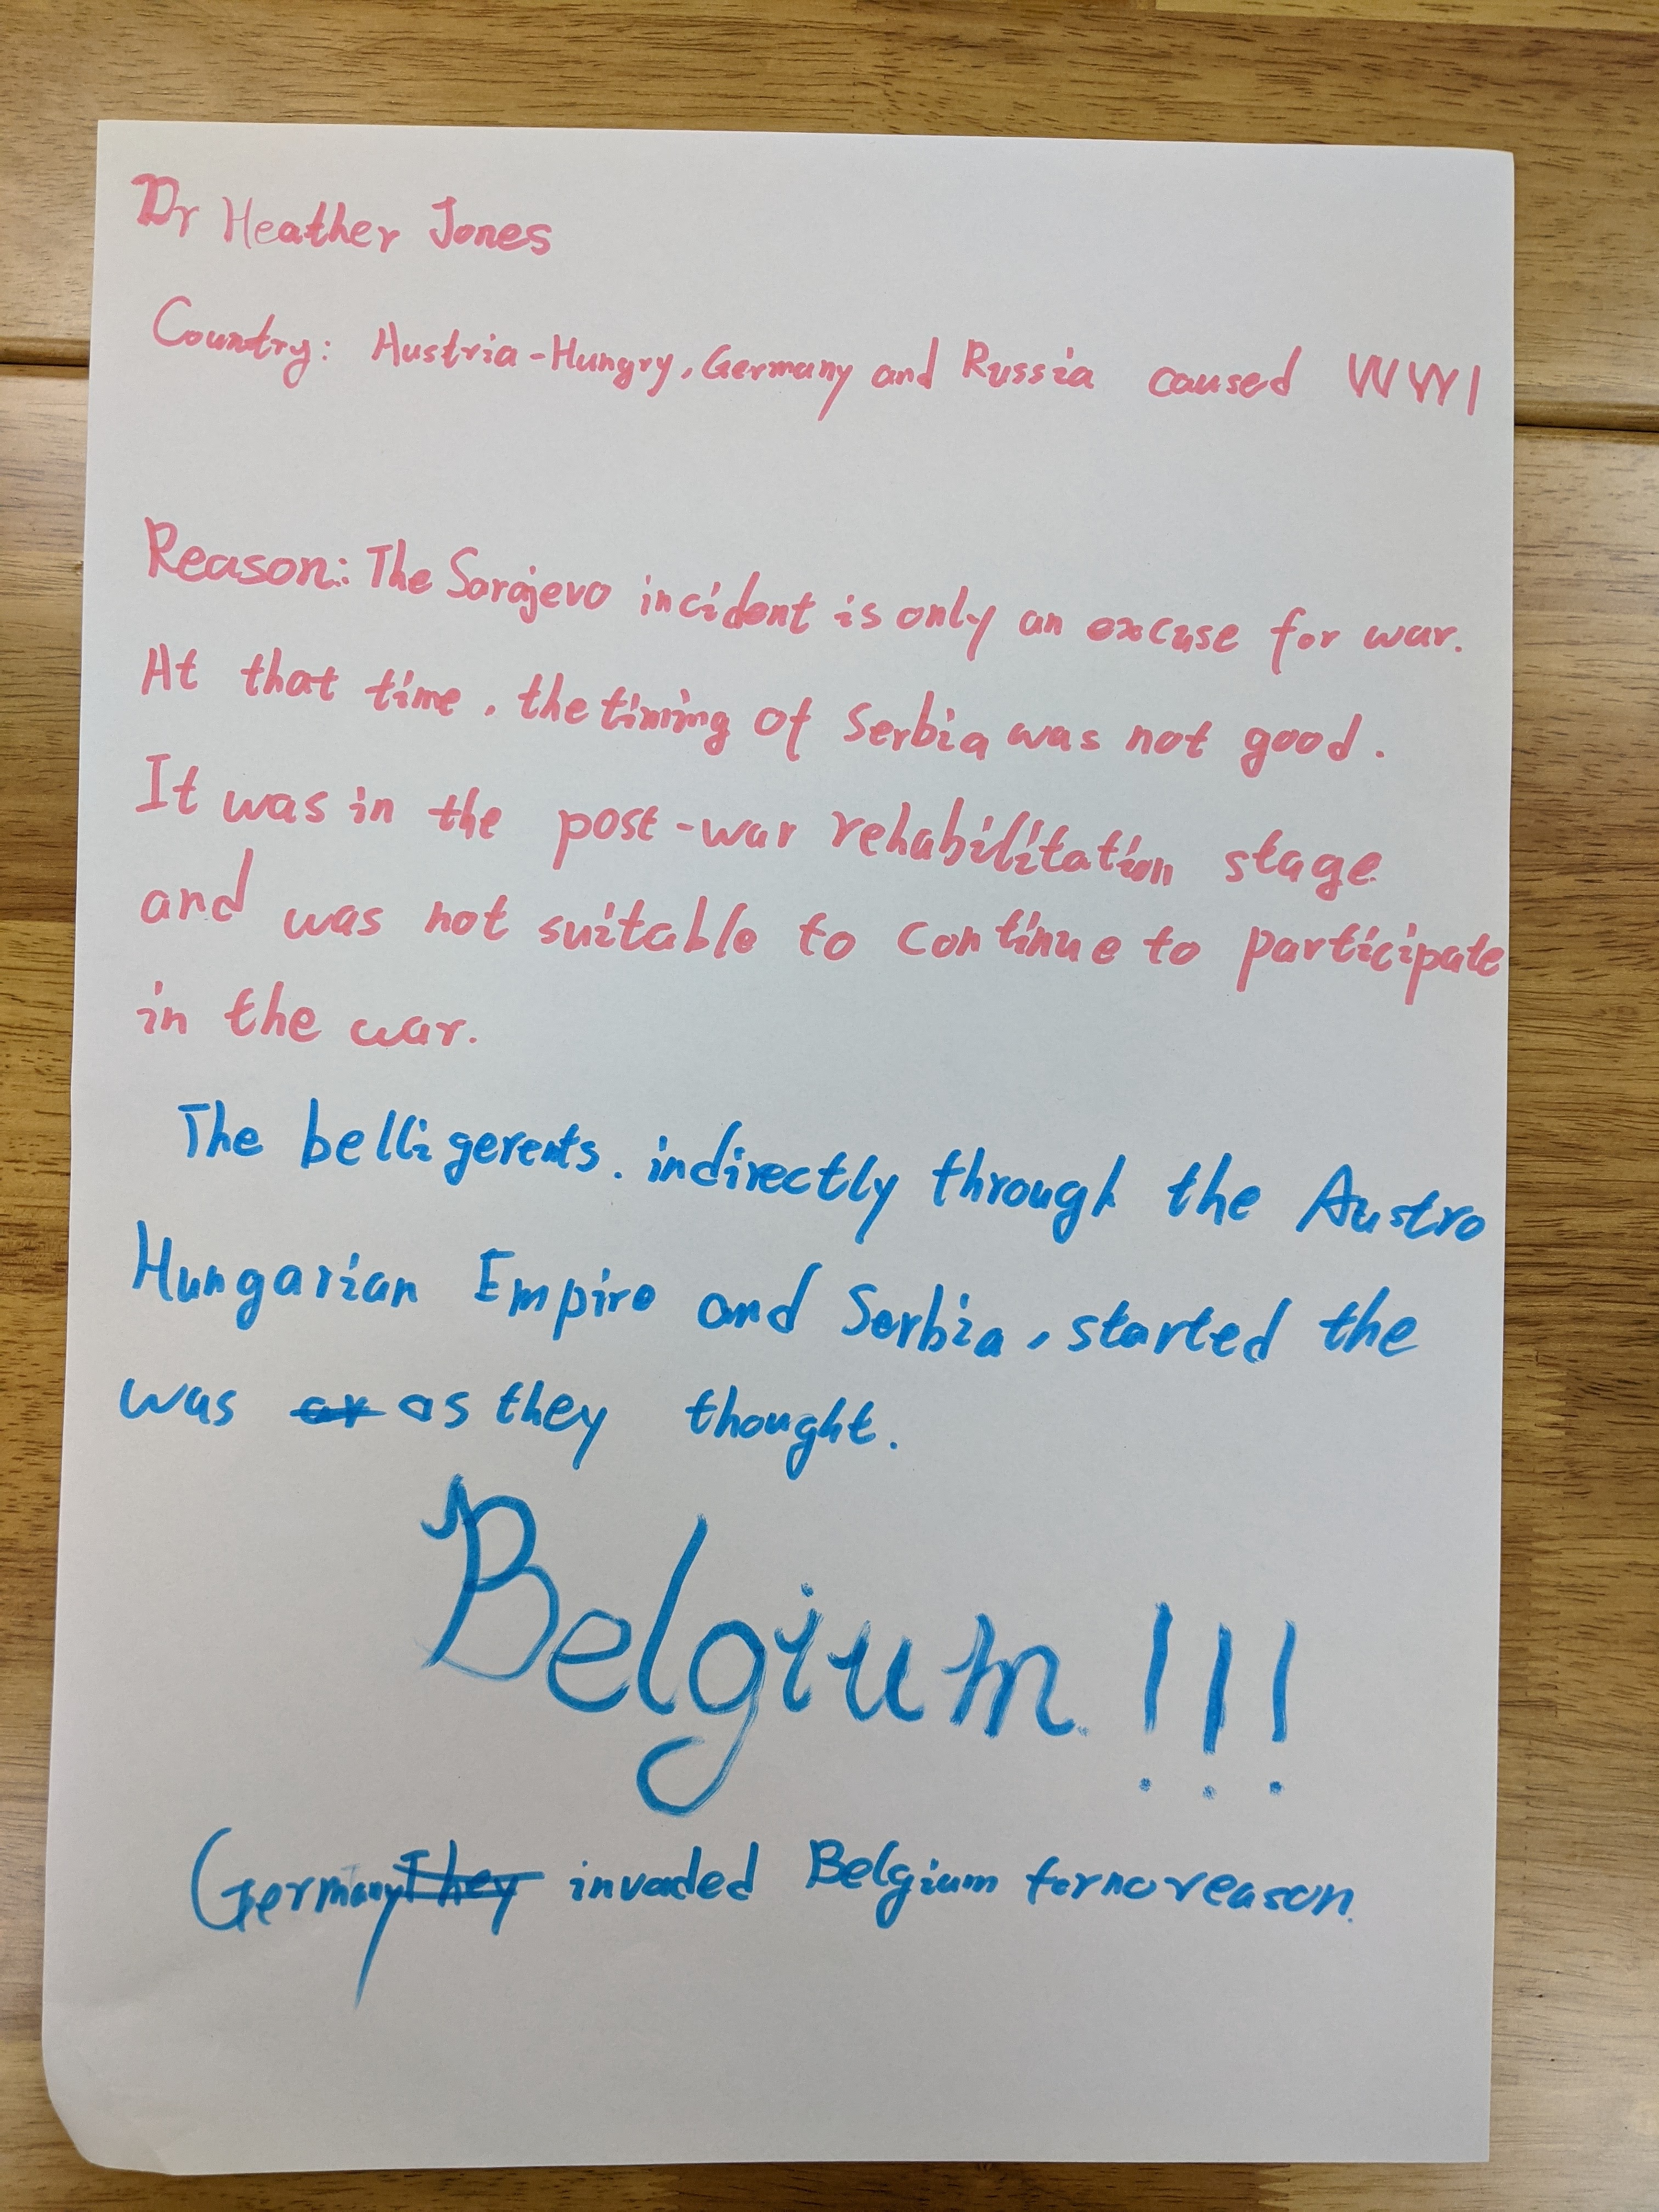 Dr Heather Jones
Country: Austria-Hungry, Germany and Russia caused WW1
Reason: The Sarajevo incident is only an excuse for war.
At that time, the timing of Serbia was not good.
It was in the post-war rehabilitation stage
and was not suitable to continue to participate
in the war.
The belligerents. indirectly through the Austro
Hungarian Empire and Serbia, started the
was as they thought.
Belgium!!!
Germany invaded Belgium for no reason.